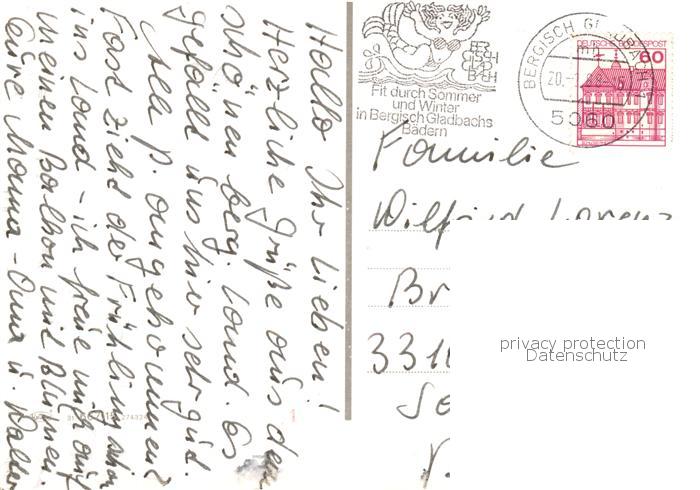 Hallo Ihr Lieben!
Herzliche Grüße aus dem
schönen berg. Land. Es
gefällt uns hier sehr gut.
Alle P. angekommen?
Fast zieht der Frühling schon
ins Land - ich freue mich auf
meinen Balkon und Blumen.
Eure Mama - Oma u.
BERGISCH GLADBACH
Fit durch Sommer
und Winter
in Bergisch Gladbachs
Bädern
BERGISCH GLADBACH
20.
5060
DEUTSCHE BUNDESPOST
60
Familie
Wilfried Lorenz
Br
331
privacy protection
Datenschutz